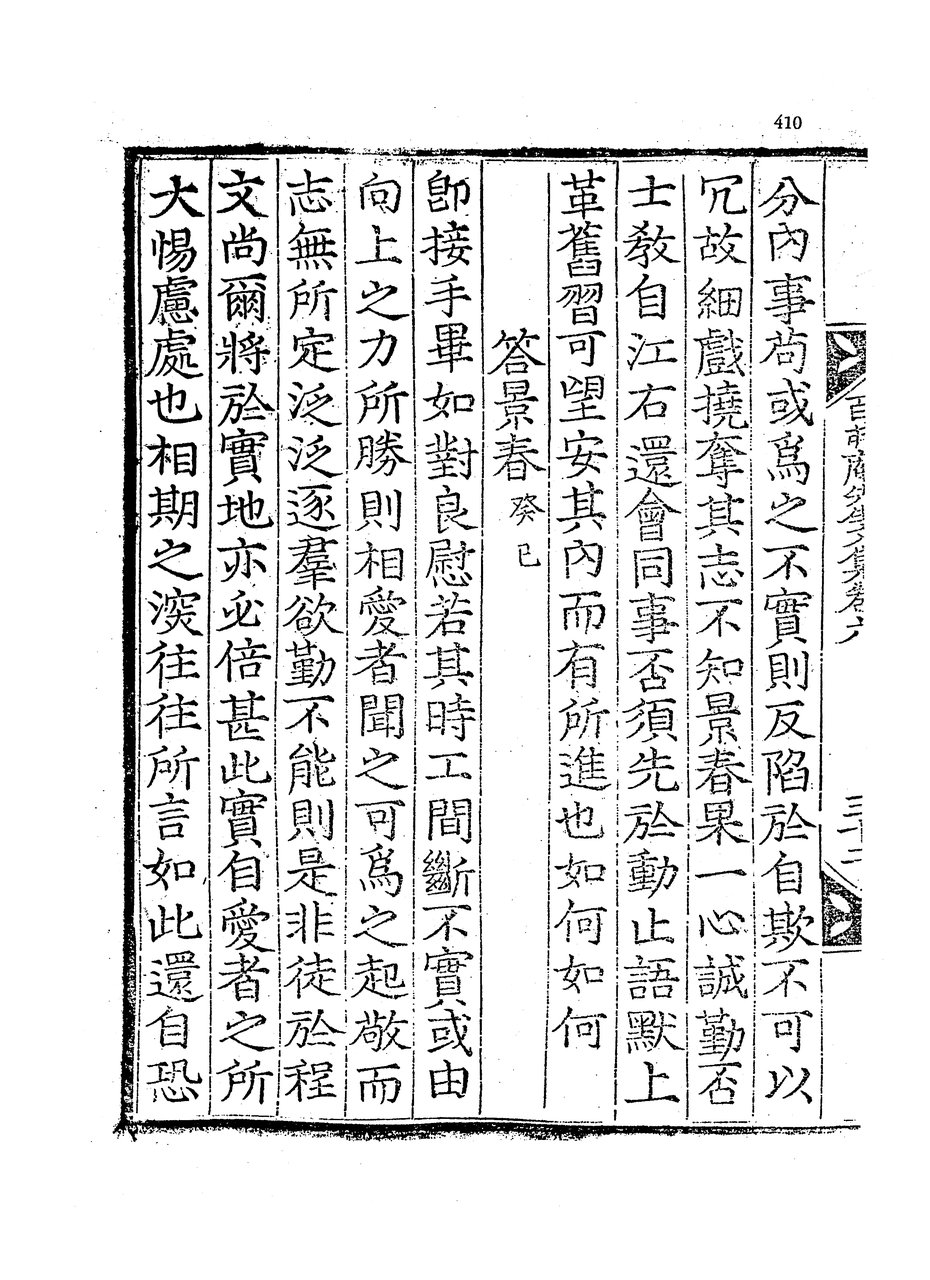 410
分內事尙或爲之不實則反陷於自欺不可以
冗故細戲撓奪其志不知景春果一心誠勤否
士敎自江右還會同事否須先於動止語默上
革舊習可望安其內而有所進也如何如何
答景春 癸巳
卽接手畢如對良慰若其時工間斷不實或由
向上之力所勝則相愛者聞之可爲之起敬而
志無所定泛泛逐羣欲勤不能則是非徒於程
文尚爾將於實地亦必倍甚此實自愛者之所
大惕慮處也相期之深往往所言如此還自恐